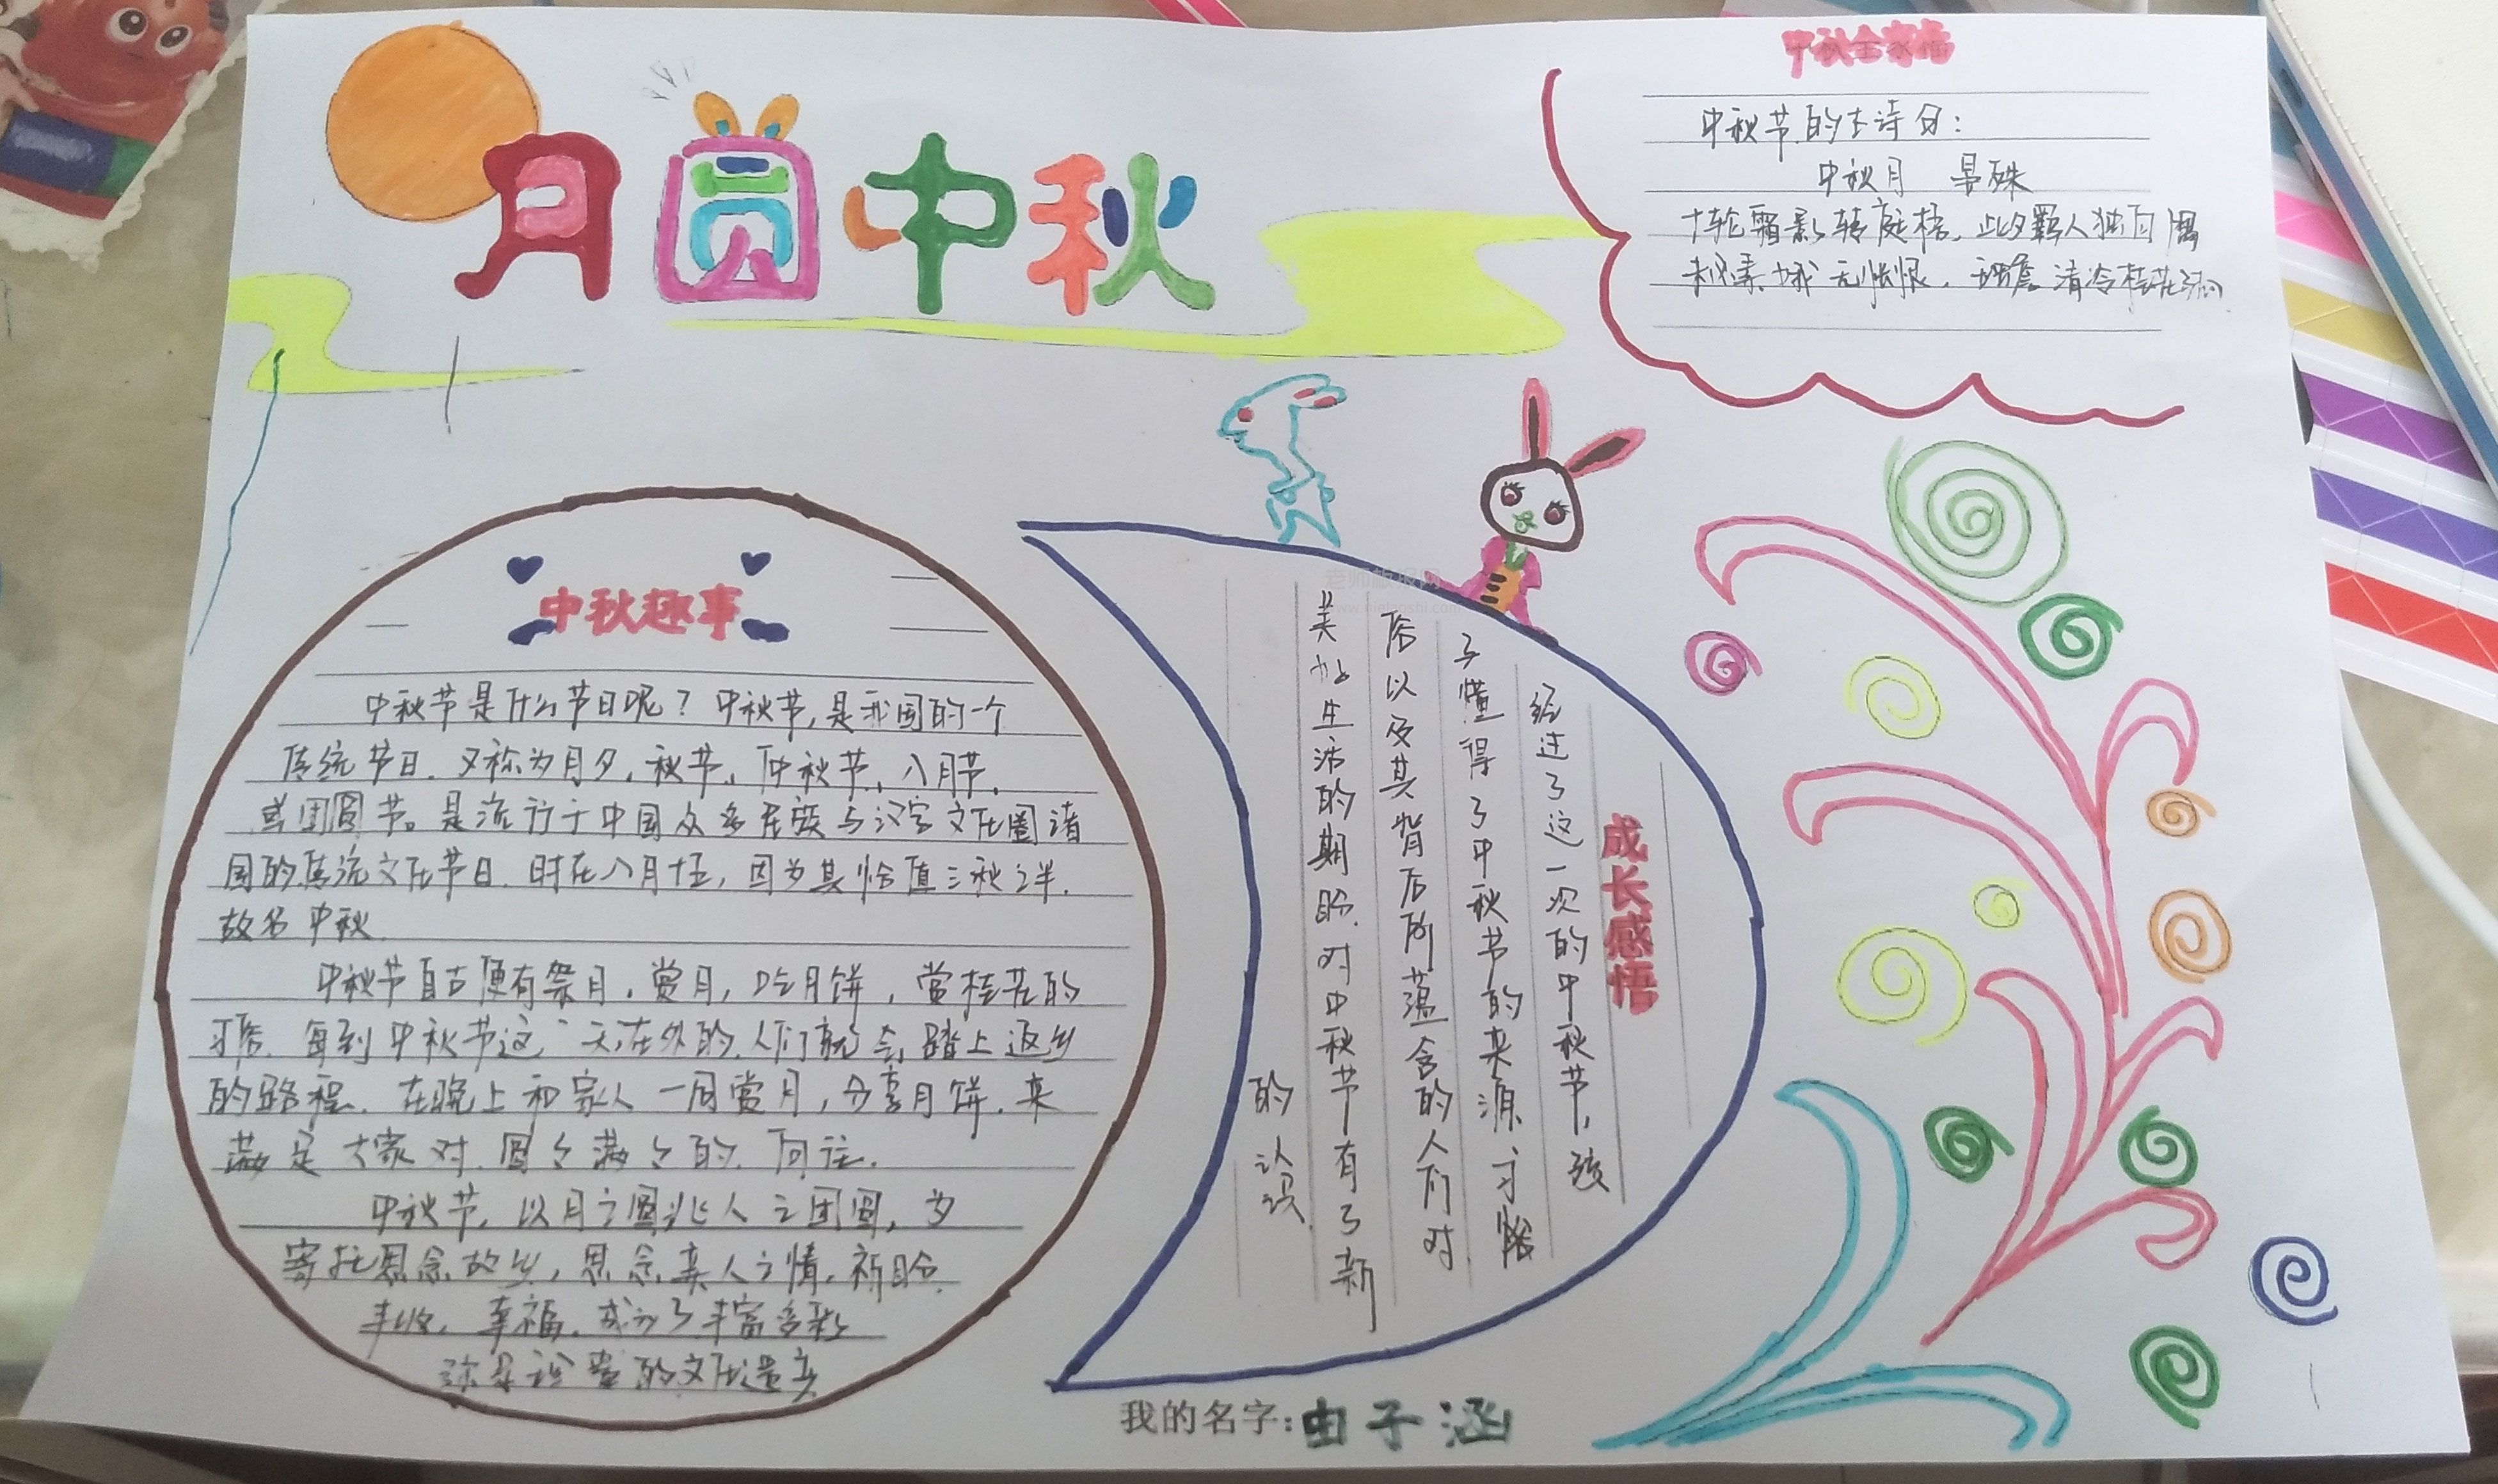 月圆中秋
中秋节的古诗句：
中秋月 晏殊
十轮霜影转庭梧，此夕羁人独自隅
未必素娥无怅恨，玉蟾清冷桂花
中秋趣事
中秋节是什么节日呢？中秋节，是我国的一个
传统节日，又称为月夕，秋节，仲秋节，八月节，
或团圆节。是流行于中国众多民族与汉字文化圈诸
国的传统文化节日，时在八月十五，因为其恰值三秋之半，
故名中秋
中秋节自古便有祭月，赏月，吃月饼，赏桂花的
习俗，每到中秋节这一天，在外的人们就会踏上返乡
的路程，在晚上和家人一同赏月，分享月饼，来
满足大家对圆々满々的向往，
中秋节，以月之圆兆人之团圆，为
寄托思念故乡，思念亲人之情，祈盼
丰收、幸福，成为了丰富多彩
弥足珍贵的文化遗产
成长感悟
经过了这一次的中秋节，孩
子懂得了中秋节的来源、习俗
俗以及其背后所蕴含的人们对
美好生活的期盼，对中秋节有了新
的认识
老师板报网
我的名字：由子涵